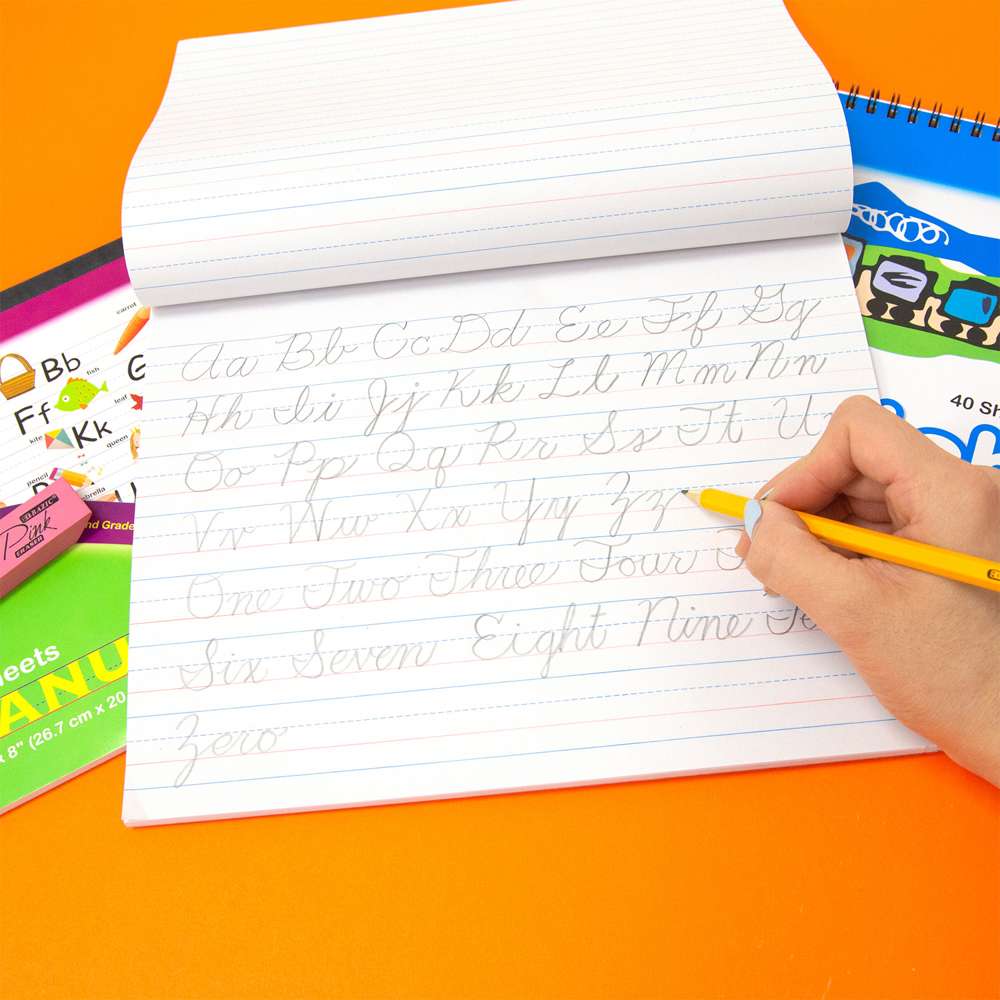 Aa Bb Cc Dd Ee Ff Gg
Hh Ii Jj Kk Ll Mm Nn
Oo Pp Qq Rr Ss Tt U
Vv Ww Xx Yy Zz
One Two Three Four F
Six Seven Eight Nine Te
Zero
carrot
Bb
fish
G
Ff
leaf
kite
Kk
queen
pencil
BAZIC
Pink
ERASER
nd Grade
eets
ANU
x 8" (26.7 cm x 20
40 Sh